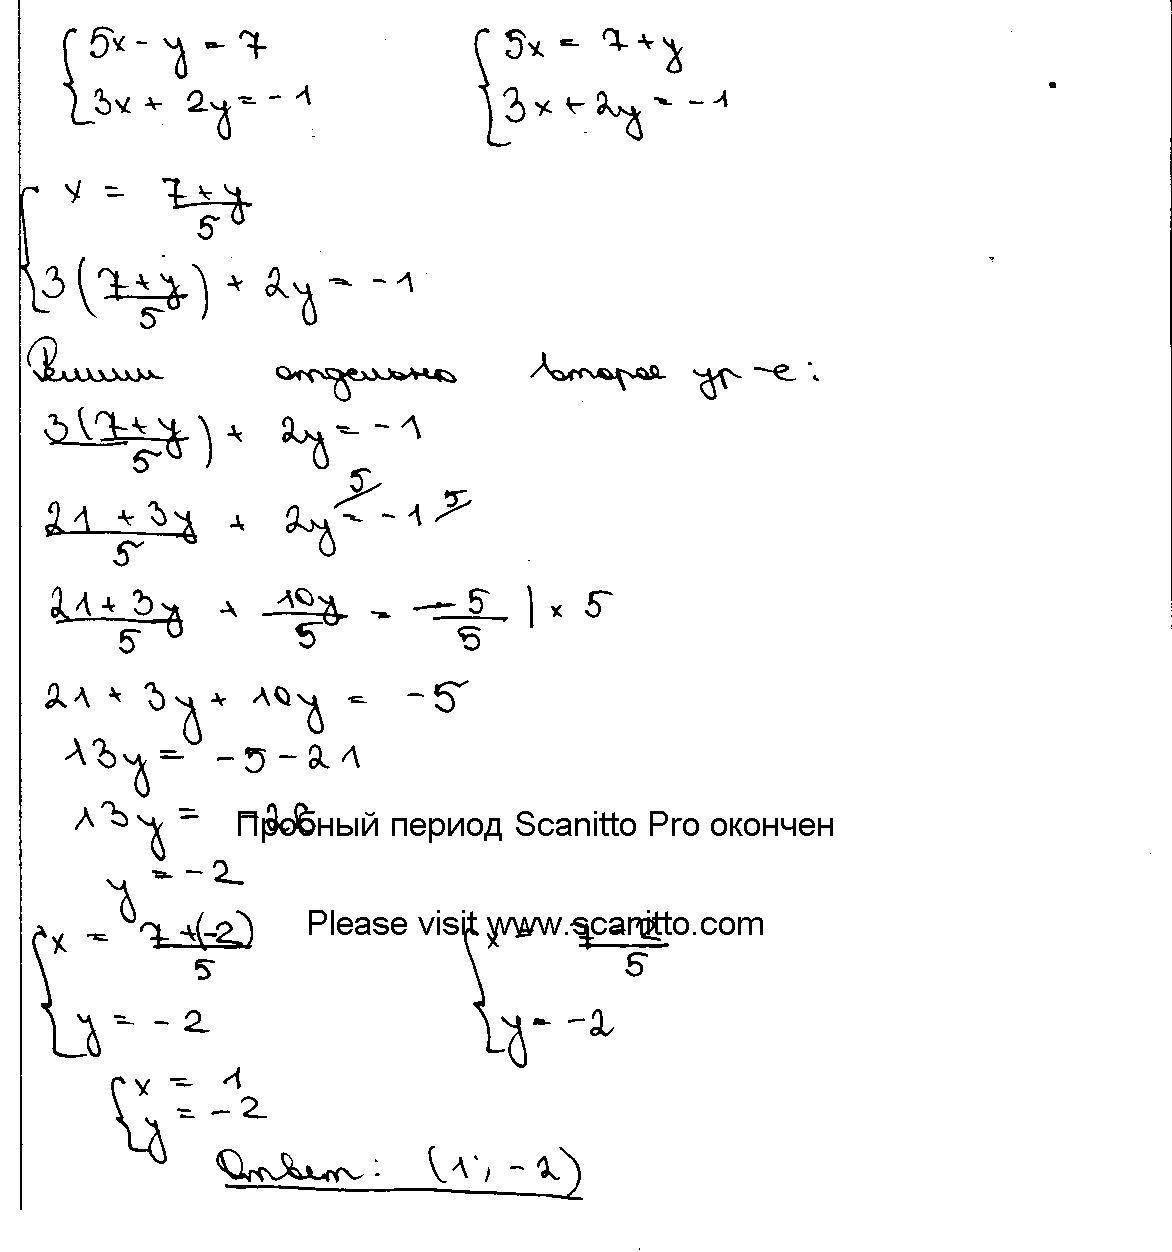 5x - y = 7    5x = 7 + y
3x + 2y = -1    3x + 2y = -1
x = (7+y)/5
3((7+y)/5) + 2y = -1
Решим отдельно второе ур-е:
3((7+y)/5) + 2y = -1
(21 + 3y)/5 + 2y /5 = -1 /5
(21 + 3y)/5 + 10y/5 = -5/5 | × 5
21 + 3y + 10y = -5
13y = -5 - 21
13y = -26
Пробный период Scanitto Pro окончен
y = -2
Please visit www.scanitto.com
x = (7+(-2))/5    x = (7-2)/5
y = -2    y = -2
x = 1
y = -2
Ответ: (1; -2)